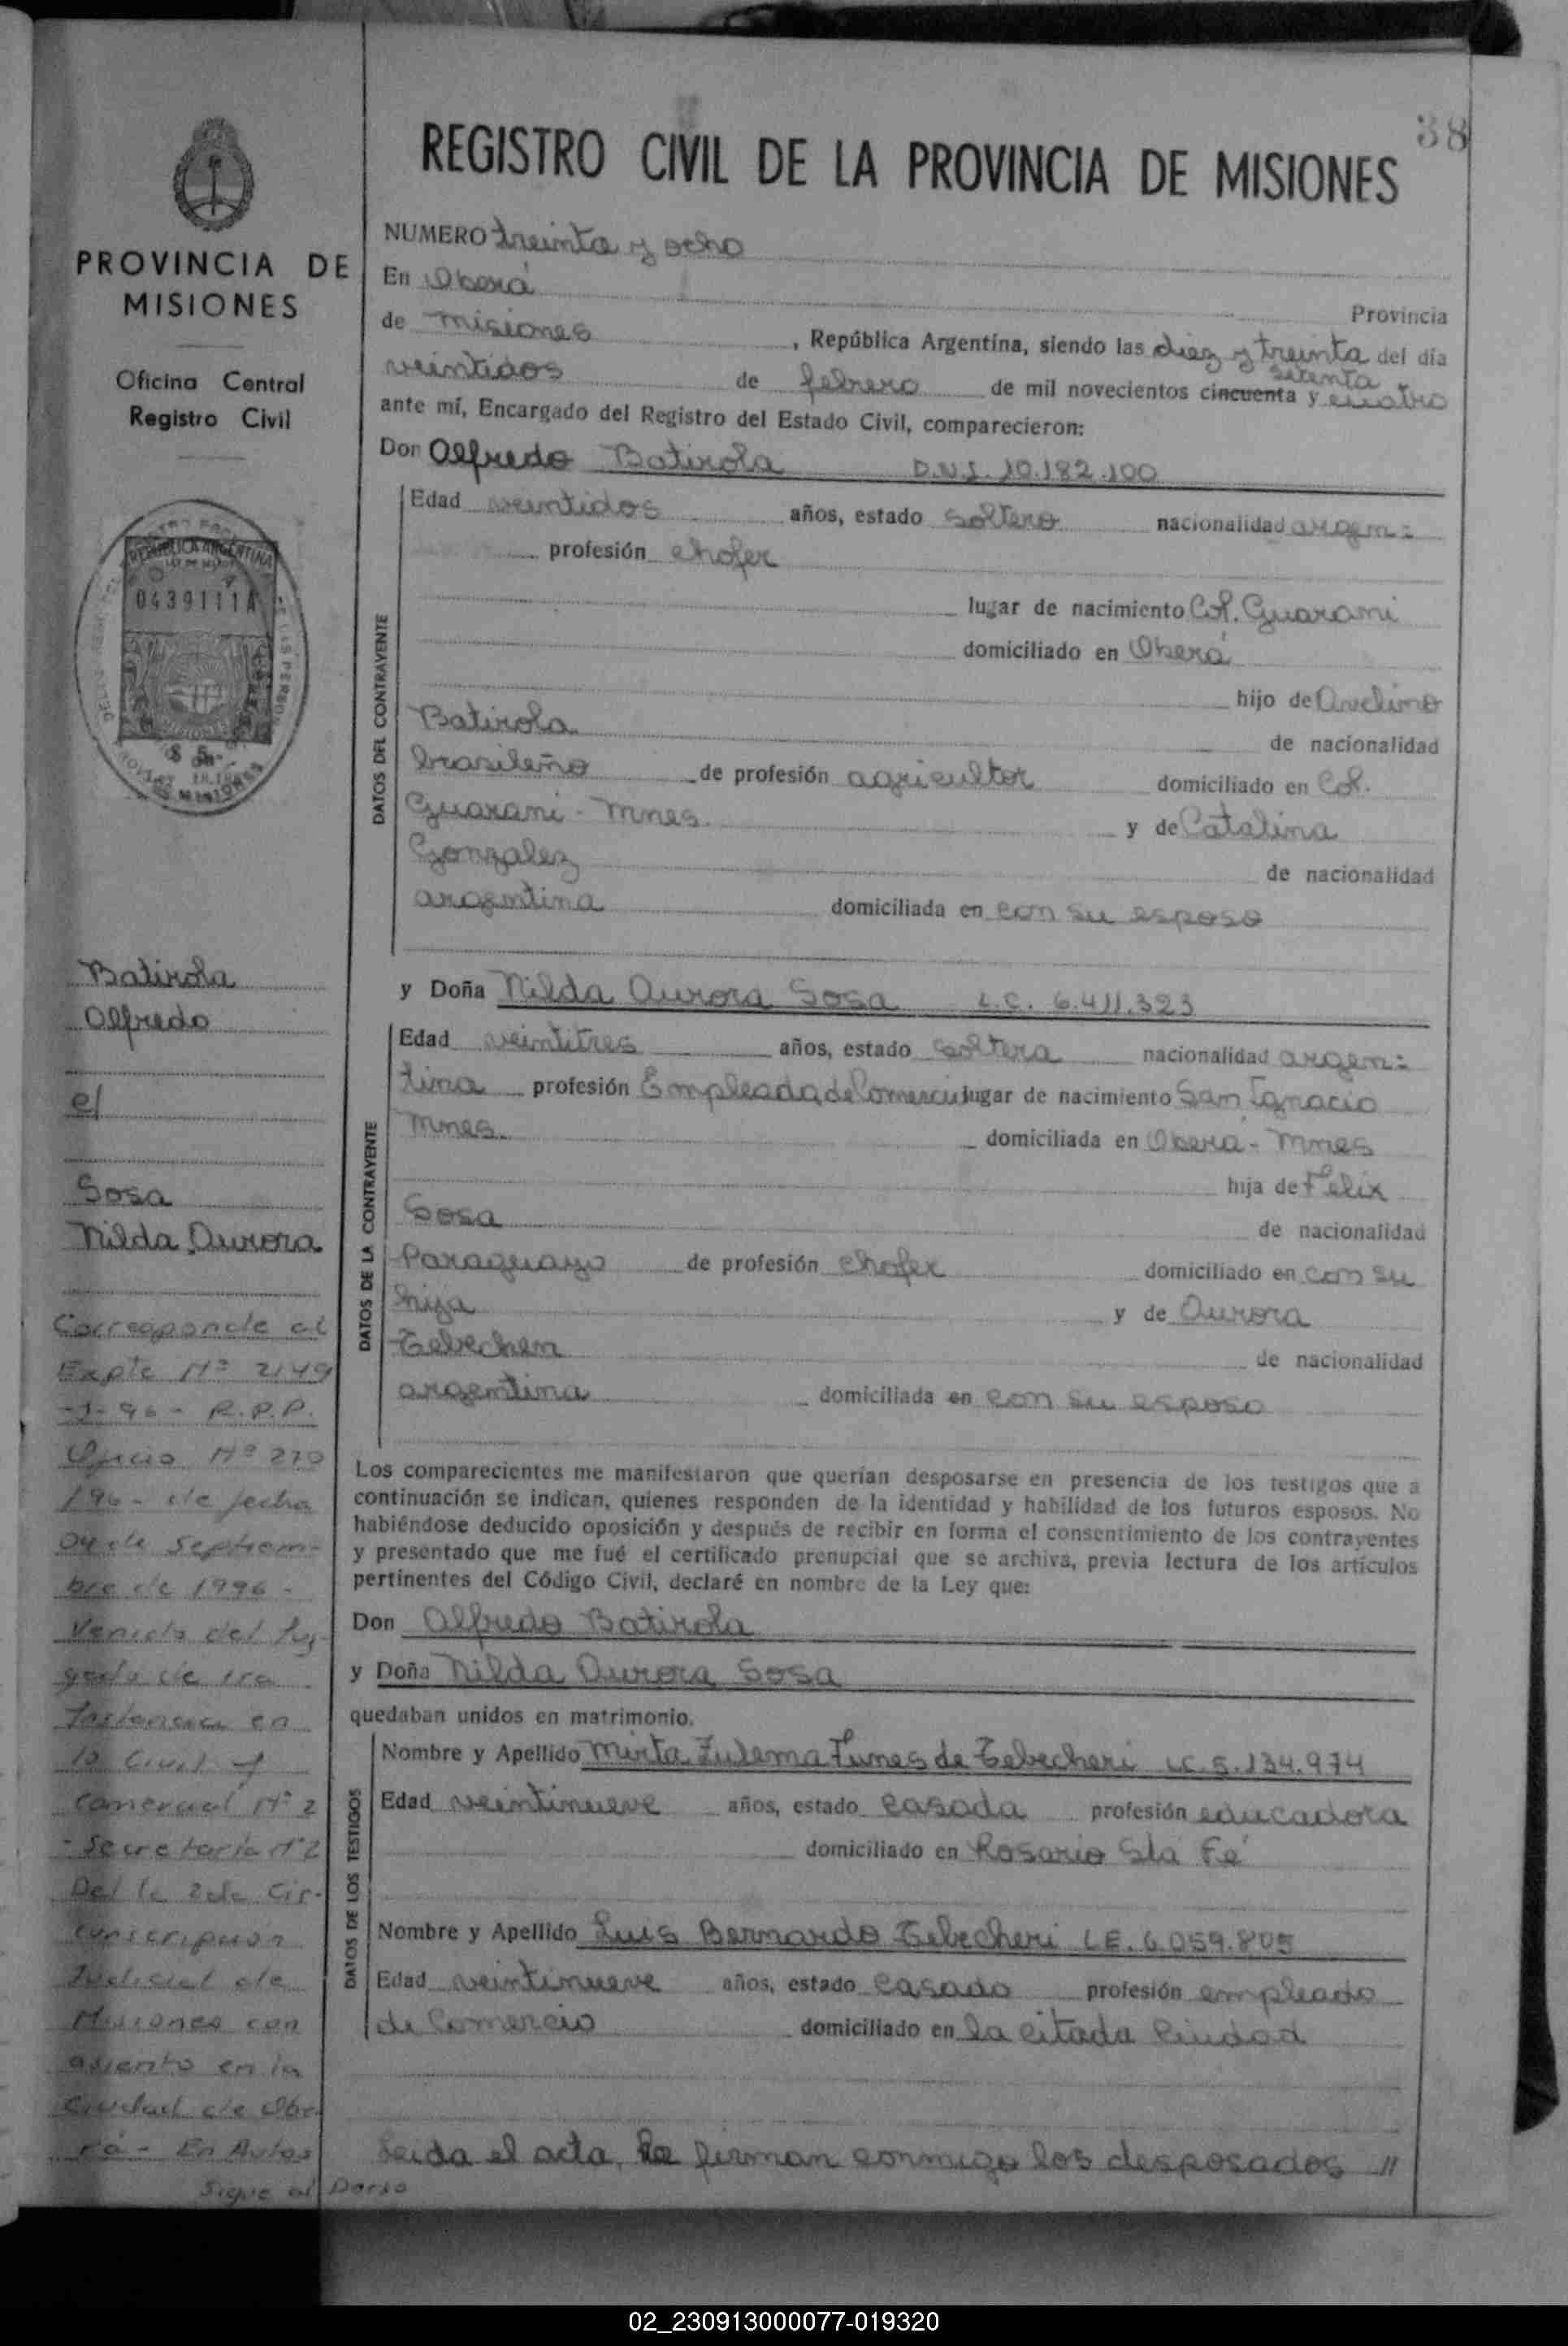 38
REGISTRO CIVIL DE LA PROVINCIA DE MISIONES
PROVINCIA DE
MISIONES
Oficina Central
Registro Civil
REPUBLICA ARGENTINA
0439111A
NUMERO treinta y ocho
En Oberá Provincia
de Misiones, República Argentina, siendo las diez y treinta del día
veintidos de febrero de mil novecientos cincuenta setenta y cuatro
ante mí, Encargado del Registro del Estado Civil, comparecieron:
Don Alfredo Batirola D.N.I. 10.182.100
DATOS DEL CONTRAYENTE
Edad veintidos años, estado soltero nacionalidad argen:
profesión chofer
lugar de nacimiento Col. Guarani
domiciliado en Oberá
hijo de Avelino
Batirola de nacionalidad
brasileño de profesión agricultor domiciliado en Col.
Guarani - Mnes. y de Catalina
Gonzalez de nacionalidad
argentina domiciliada en con su esposo
y Doña Nilda Aurora Sosa L.C. 6.411.323
DATOS DE LA CONTRAYENTE
Edad veintitres años, estado soltera nacionalidad argen:
tina profesión Empleada de Comercio lugar de nacimiento San Ignacio
Mnes. domiciliada en Oberá - Mnes
hija de Felix
Sosa de nacionalidad
Paraguayo de profesión chofer domiciliado en con su
hija y de Aurora
Tebecheri de nacionalidad
argentina domiciliada en con su esposo
Los comparecientes me manifestaron que querían desposarse en presencia de los testigos que a
continuación se indican, quienes responden de la identidad y habilidad de los futuros esposos. No
habiéndose deducido oposición y después de recibir en forma el consentimiento de los contrayentes
y presentado que me fué el certificado prenupcial que se archiva, previa lectura de los artículos
pertinentes del Código Civil, declaré en nombre de la Ley que:
Don Alfredo Batirola
y Doña Nilda Aurora Sosa
quedaban unidos en matrimonio.
DATOS DE LOS TESTIGOS
Nombre y Apellido Mirta Zulema Funes de Tebecheri LC. 5.134.974
Edad veintinueve años, estado casada profesión educadora
domiciliado en Rosario Sta Fé
Nombre y Apellido Luis Bernardo Tebecheri LE. 6.059.805
Edad veintinueve años, estado casado profesión empleado
de Comercio domiciliado en la citada Ciudad
Leida el acta, la firman conmigo los desposados //
Batirola
Alfredo
c/
Sosa
Nilda Aurora
Corresponde al
Expte Nº 2149
-1-96- R.P.P.
Oficio Nº 270
/96- de fecha
04 de Septiem-
bre de 1996 -
Venido del Juz-
gado de 1ra
Instancia en
lo Civil y
Comercial Nº 2
- Secretaría Nº 2
De la 2da Cir-
cunscripción
Judicial de
Misiones con
asiento en la
Ciudad de Obe-
rá - En Autos
Sigue al Dorso
02_230913000077-019320